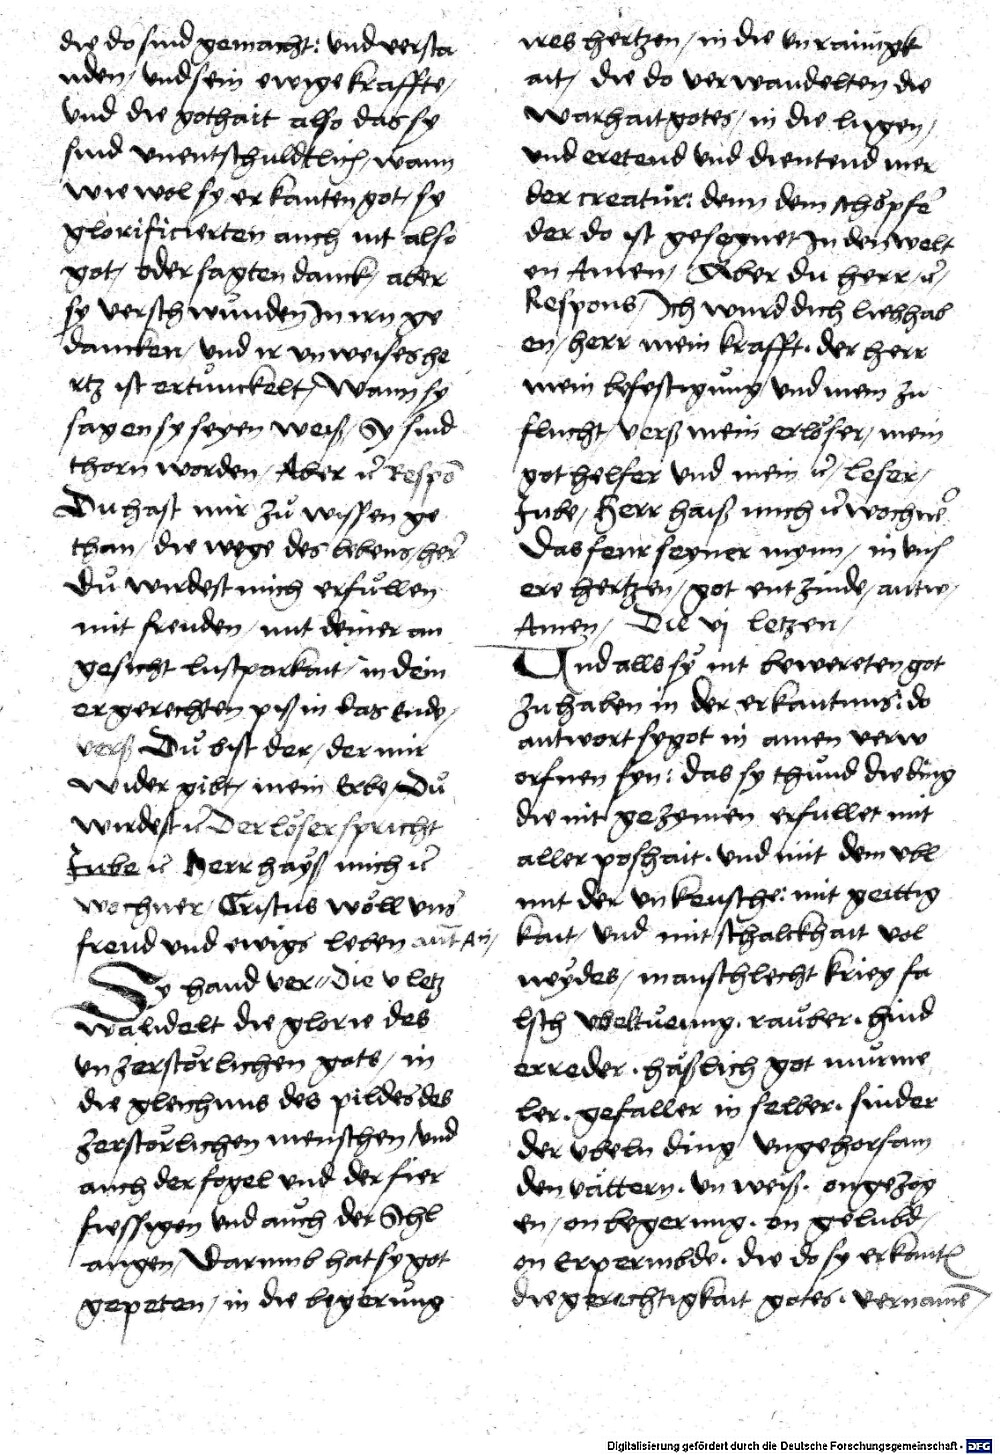 die do sind gemacht: vnd versta
nden/ vnd sein ewige krafft/
vnd die gothait also das sy
sind vnentschuldtlich/ wann
wie wol sy erkanten got/ sy
glorificierten auch nit also
got/ oder sagten danck/ aber
sy verschwůnden In irn ge
dancken/ vnd ir vnweises he
rtz ist ertůnckelt/ Wann sy
sagen sy seyen weiß/ Sy sind
thorn worden/ Aber ꝛc Respō
Du hast mir zů wissen ge
than/ die wege des lebens/ her
du wirdest mich erfůllen
mit freuden/ mit deiner an
gesicht lustparkait/ in dein
er gerechten piß in das Ende/
verß Dů bist der/ der mir
wider gibt/ mein Erbe/ Dů
wirdest ꝛc Der löser spricht
Jube ꝛc Herr hayß mich ꝛc
wochner/ Cristus wöll vns
freud vnd ewigs leben ant̄ Am̄/
Sy hand ver// Die v letz
wandelt die glorie des
vnzerstörlichen gots/ in
die gleichnus des pildes des
zerstörlichen menschen/ vnd
auch der fogel vnd der fier
fiessigen vnd auch der Schl
angen/ Darumb hat sy got
gepeten/ in die begerůng
ires hertzen/ in die vnrainigk
ait/ die do verwandelten die
warhait gotes/ in die lugen/
vnd eretend vnd dientend mer
der creatůr: denn dem schöpfer
der do ist gesegnet In den welt
en Amen/ Aber du herr ꝛc/
Respons/ Ich wurd dich liebhab
en/ herr mein krafft. der herr
mein befestigůng/ vnd mein zu
flucht/ verß mein erlöser/ mein
got helfer vnd mein ꝛc/ leser/
Jube/ Herr haiß mich ꝛc wochnē
Das feur seyner mynn/ in vns
ere hertzen/ got entzinde/ antw/
Amen/ Die vj letzen/
Und alls sy nit bewereten got
zu haben in der erkantnus: do
antwort sy got in ainen verw
orfnen syn: das sy thůnd die ding
die nit gezemen erfullet mit
aller poshait. vnd mit dem vbl
mit der vnkeusche: mit geittig
kait/ vnd mit schalckhait vol
neydes/ manschlecht krieg fa
lsch vbeltuung. rauber. hind
erreder. häßlich got murme
ler. gefaller in selber. finder
der vbeln ding vngehorsam
den vättern. vnweiß. ongezog
en/ on begerung. on gelubd/
on Erpermbde. die do sy erkantē
die gerechtigkait gotes. vernamē/
Digitalisierung gefördert durch die Deutsche Forschungsgemeinschaft - DFG